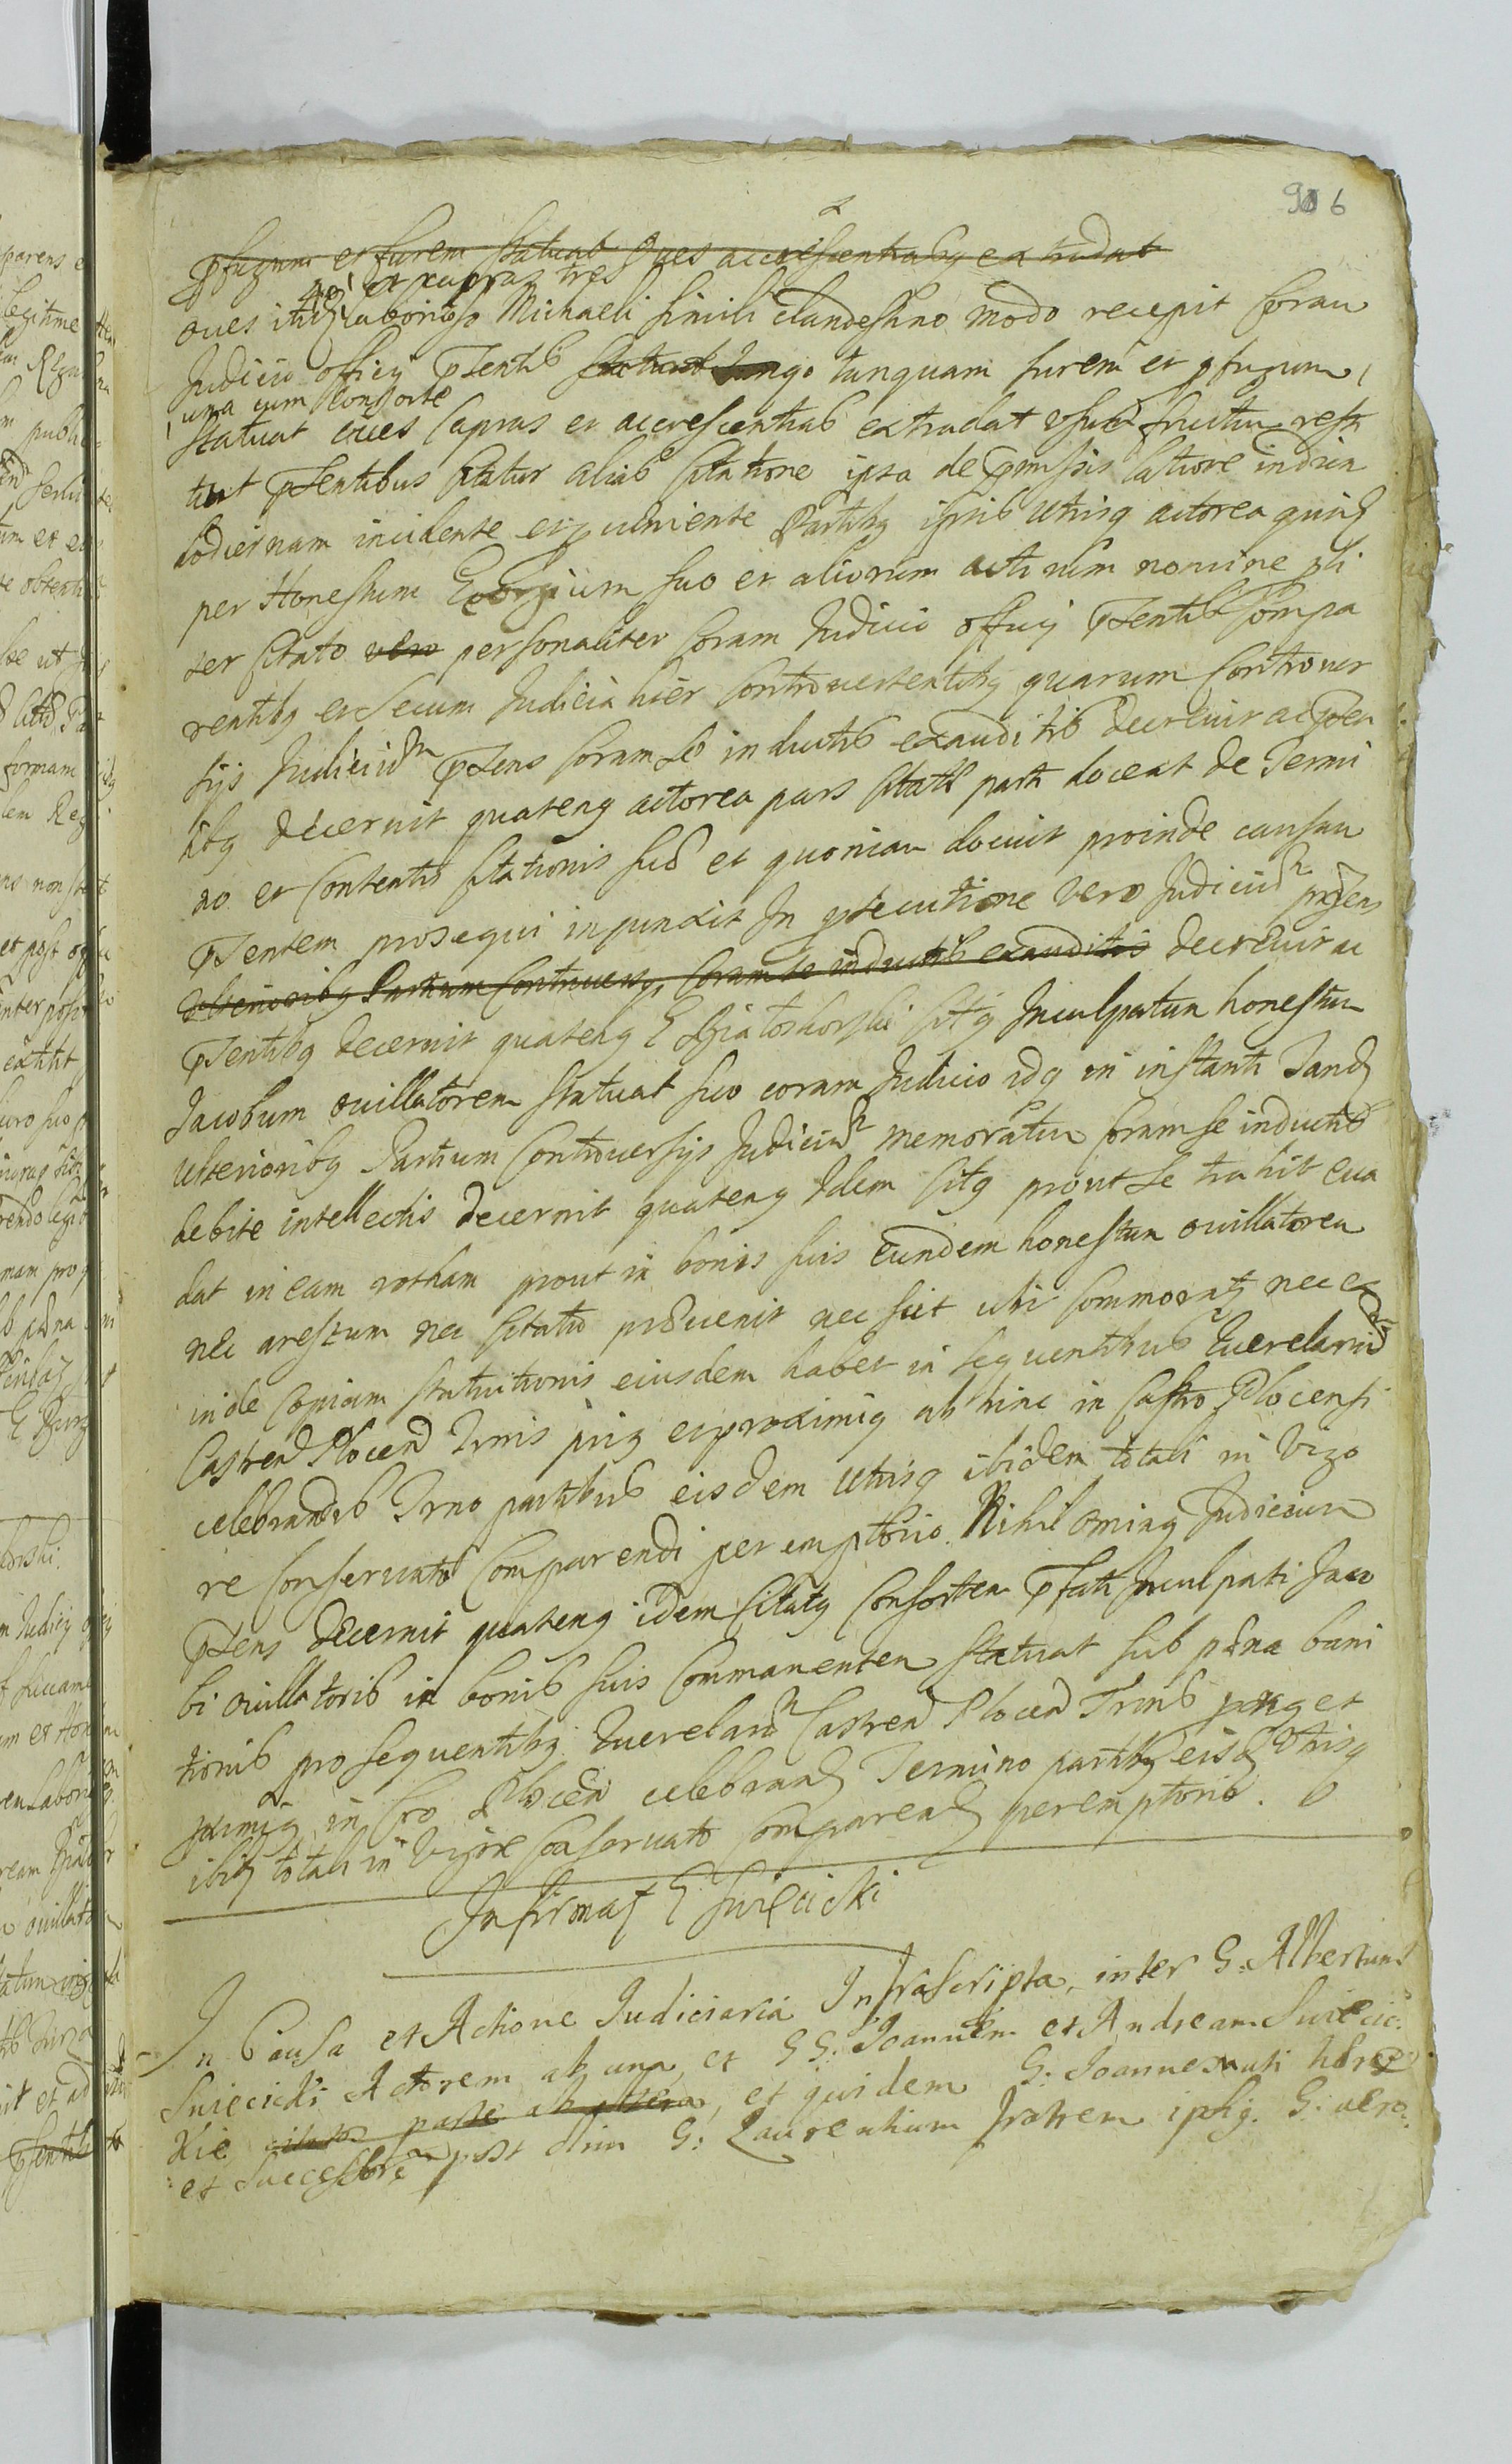 906
pfugum et furem statuat oues accrescentiasq extradat
no et capras tres
oues itidem laborioso Michaeli simili clandestino modo recepit coram
Judicio officij psentib statuat tanquam furem et pfugum,
una cum consorte
statuat oues Capras et accrescentias extradat usum fructum resti
tuat psentibus Citatur alias Citatione ipsa de pmissis latiore in diem
hodiernam incidente et pueniente Partibq ipsis Utrisq actorea quid
per Honestum Georgium suo et aliorum actorum nomine pti
ter Citato vero personaliter Coram Judicio officij psentib Compa
rentibq et secum Judicialiter Controuertentibq quarum Controuer
sijs Judicium psens Coram se inductis exauditis decreuit ac psen
tibq decernit quatenq actorea pars Citatae parti doceat de Termi
no et Contentis Citationis suae et quoniam docuit proinde causam
psentem prosequi injunxit In psecutione vero Judicium psens
Ulterioribq Partium Controuersijs Coram se inductis exauditis decreuit ac
psentibq decernit quatenq G Citq Inculpatum honestum
Jacobum ouillatorem statuat suo coram Judicio idq in instanti Tand
Ulterioribq Partium Controuersijs Judicium memoratum Coram se inductis
debite intellectis decernit quatenq Idem Citq prout se trahit eua
dat in eam rotham prout in bonis suis Eundem honestum ouillatorem
nec arestum nec Citatio praeuenit nec scit ubi Commoratq nec ex
inde Copiam statuitionis eiusdem habet in sequentibus Querelarum
Castren Plocen Trmis prig et proximiq ab hinc in Castro Plocensi
celebrandis Trno partibus eisdem Utrisq ibidem totali in Vigo
re Conseruato Comparendi peremptorio. Nihilominq Judicium
psens decernit quatenq idem Citatq Consortem pfati Inculpati Jaco
bi ouillatoris in bonis suis Commanentem statuat sub paena bani
tionis pro sequentibq Querelarum Castren Plocen Trmis prig et
ximiq in Cro Plocen celebrand Termino partibq eisd Utrisq
ibid totali in Vigore Conseruato Comparend peremptorio.
Infirmat G Suiecicki
In Causa et Actione Judiciaria Infrascripta, inter G: Albertum
Suiecicki Actorem ab una, et GG: Joannem et Andream Suiecic:
kie citatos parte ab altera, et quidem G: Joannem uti haere
et Successore post olim G: Laurentium fratrem ipsiq. G: vero